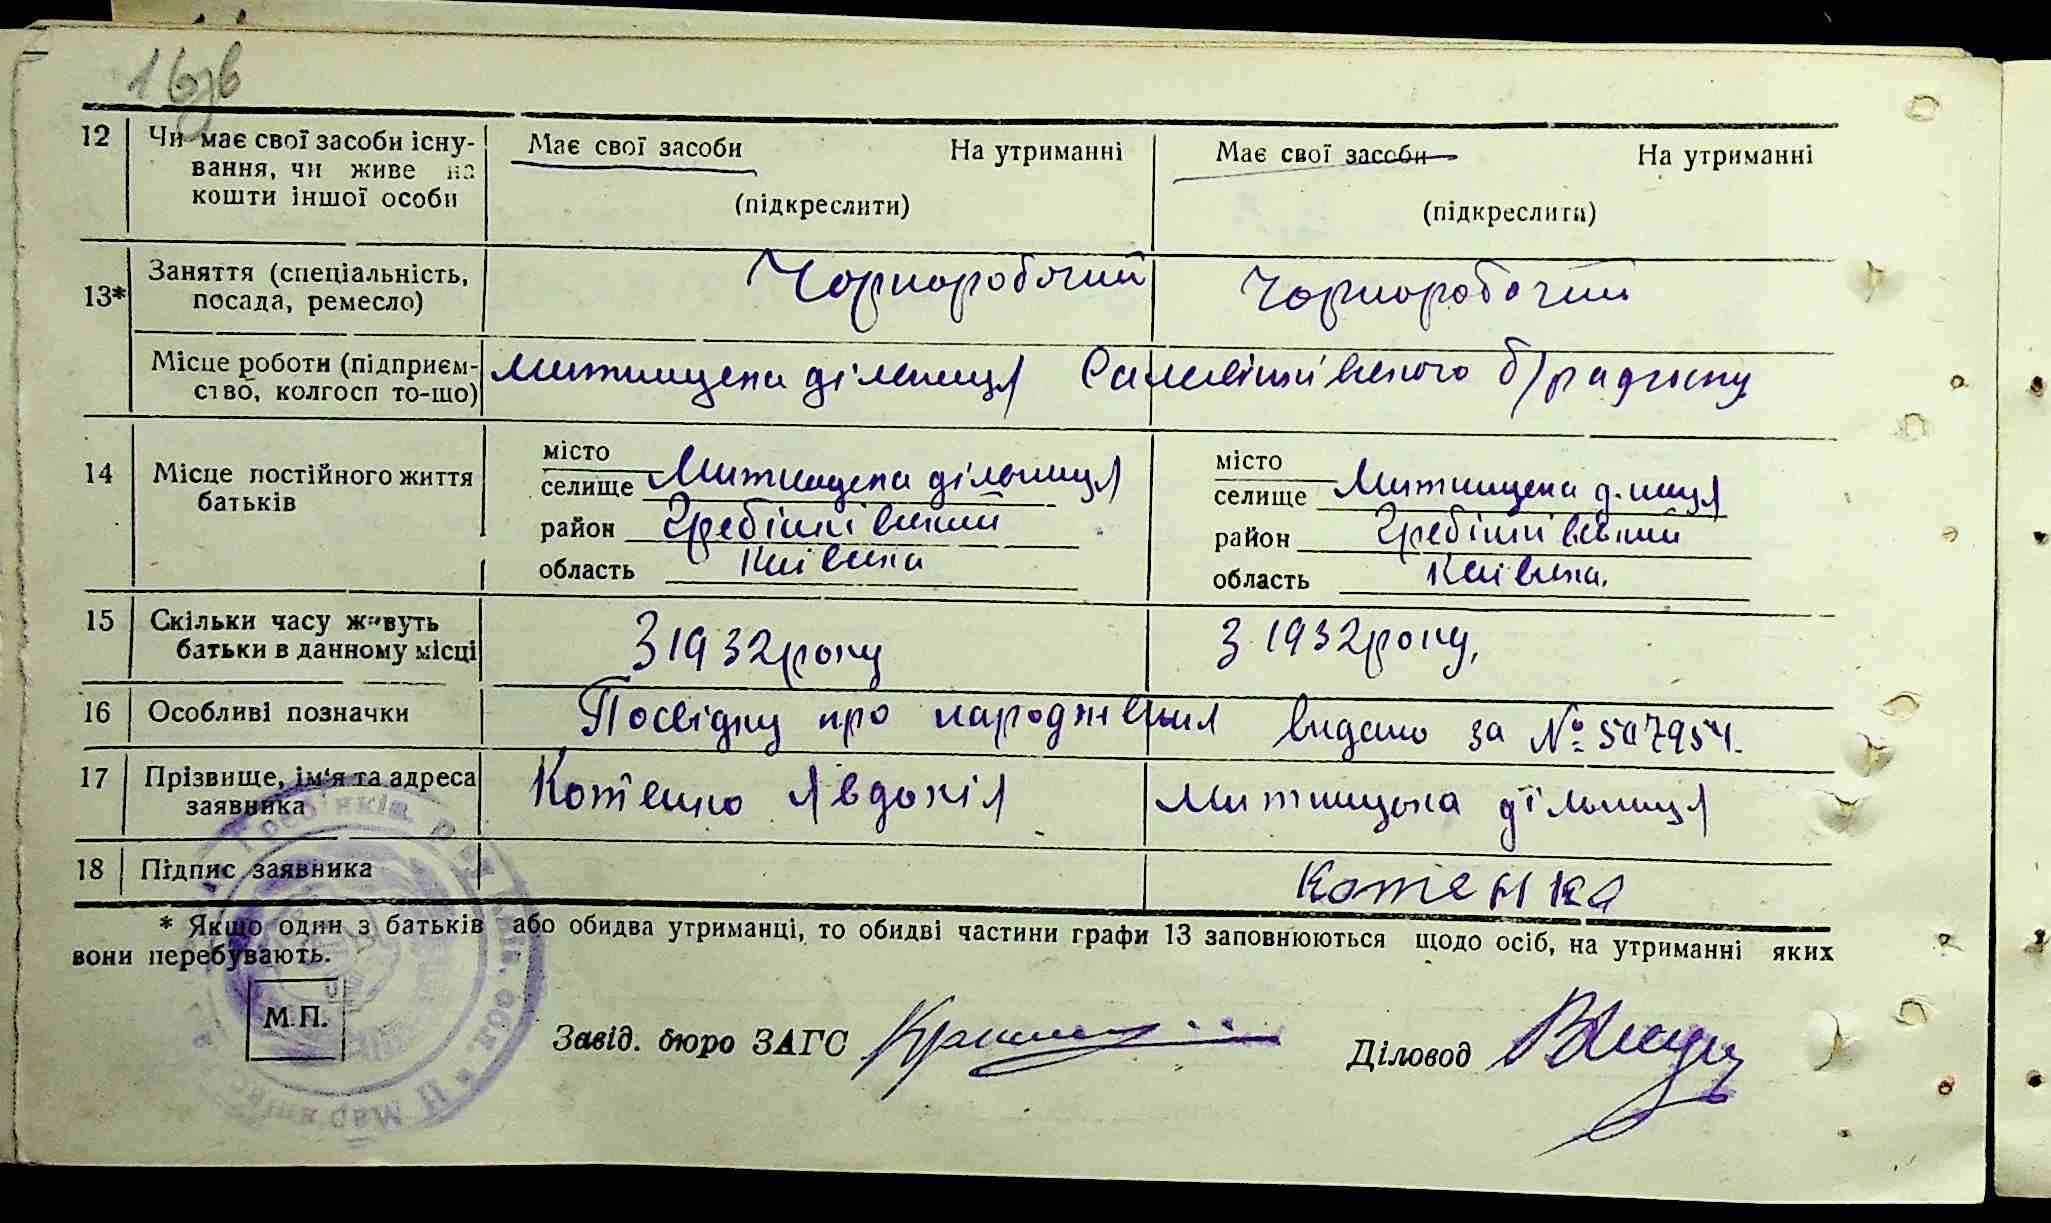 16зв
12 Чи має свої засоби існу- Має свої засоби На утриманні Має свої засоби На утриманні
вання, чи живе на
кошти іншої особи (підкреслити) (підкреслити)
13* Заняття (спеціальність, Чорноробочий Чорноробочий
посада, ремесло)
Місце роботи (підприєм- Митницька дільниця Саливінківського б/радгоспу
ство, колгосп то-що)
14 Місце постійного життя місто місто
батьків селище Митницька дільниця селище Митницька д.ниця
район Гребінківський район Гребінківський
область Київська область Київська.
15 Скільки часу живуть З 1932 року З 1932 року,
батьки в данному місці
16 Особливі позначки Посвідку про народження видано за № 507954.
17 Прізвище, ім'я та адреса Котенко Явдокія Митницька дільниця
заявника
18 Підпис заявника Котенка
* Якщо один з батьків або обидва утриманці, то обидві частини графи 13 заповнюються щодо осіб, на утриманні яких
вони перебувають.
М.П. Завід. бюро ЗАГС Діловод